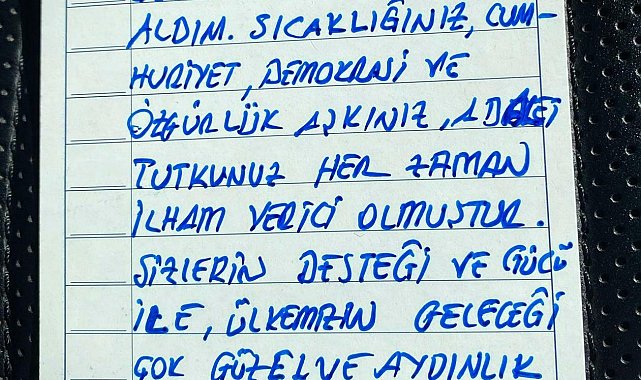 ALDIM. SICAKLIĞINIZ, CUM-
HURİYET, DEMOKRASİ VE
ÖZGÜRLÜK AŞKINIZ, ADALET
TUTKUNUZ HER ZAMAN
İLHAM VERİCİ OLMUŞTUR.
SİZLERİN DESTEĞİ VE GÜCÜ
İLE, ÜLKEMİZİN GELECEĞİ
ÇOK GÜZEL VE AYDINLIK